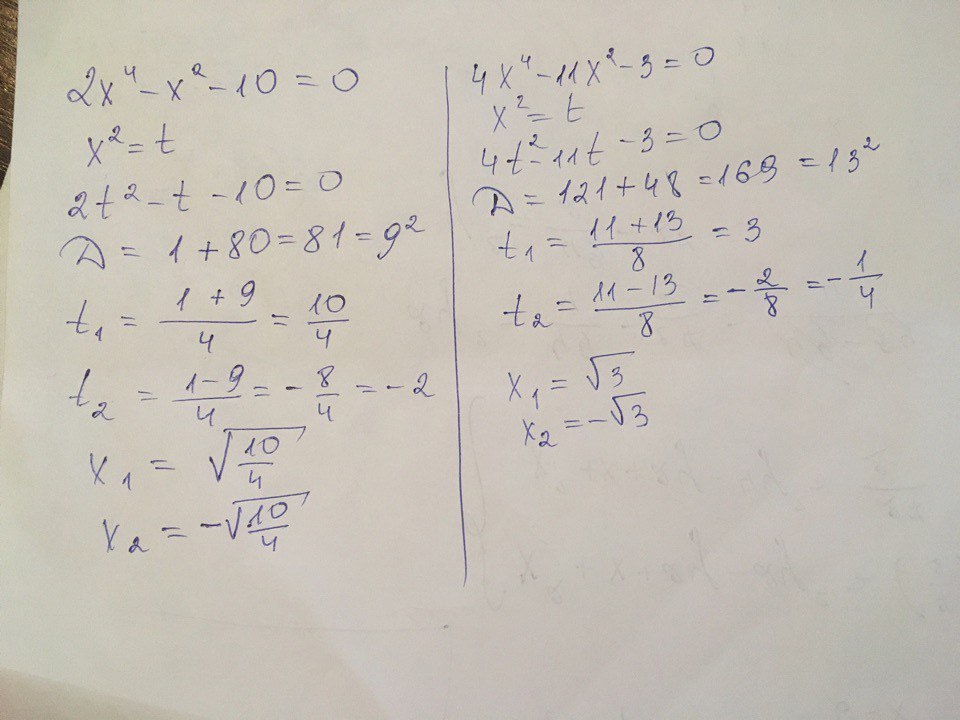 2x⁴ - x² - 10 = 0
x² = t
2t² - t - 10 = 0
D = 1 + 80 = 81 = 9²
t₁ = (1 + 9)/4 = 10/4
t₂ = (1 - 9)/4 = -8/4 = -2
x₁ = √(10/4)
x₂ = -√(10/4)
4x⁴ - 11x² - 3 = 0
x² = t
4t² - 11t - 3 = 0
D = 121 + 48 = 169 = 13²
t₁ = (11 + 13)/8 = 3
t₂ = (11 - 13)/8 = -2/8 = -1/4
x₁ = √3
x₂ = -√3